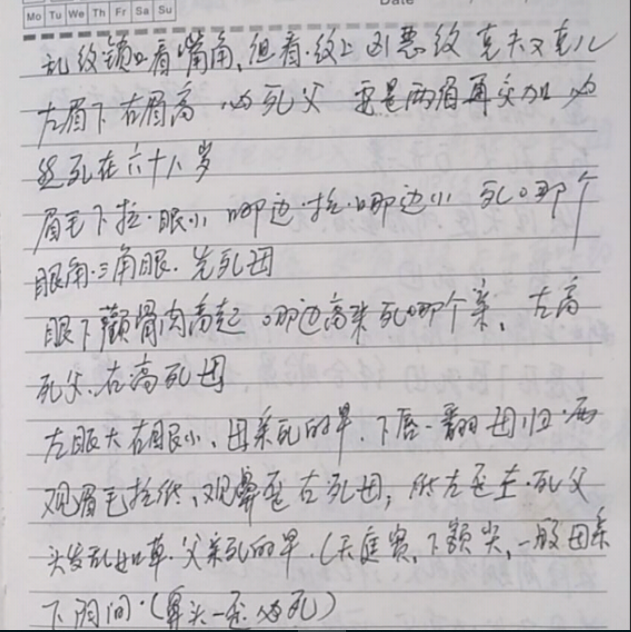 Mo Tu We Th Fr Sa Su
Date
乱纹锁口看嘴角,但看纹上凶恶纹 克夫又克儿
左眉下右眉高 必死父 要是两眉再交加 必
然死在六十八岁
眉毛下拉·眼小 哪边·拉·哪边小 死哪个
眼角·三角眼·先死母
眼下颧骨肉高起 哪边高来死哪个亲、左高
死父、右高死母
左眼大右眼小、母亲死的早、下唇一翻母归西
观眉毛拉低、观鼻歪右死母,往左歪左·死父
头发乱如草·父亲死的早·(天庭宽,下额尖,一般母亲
下阴间·(鼻头一歪必死)